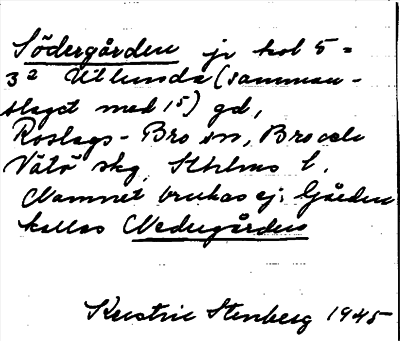 Södergården jr kol 5 =
3² Utlunda (samman-
slaget med 1⁵) gd,
Roslags-Bro sn, Bro och
Vätö skg, Sthlms l.
Namnet brukas ej; Gården
kallas Nedergården
Kerstin Stenberg 1945